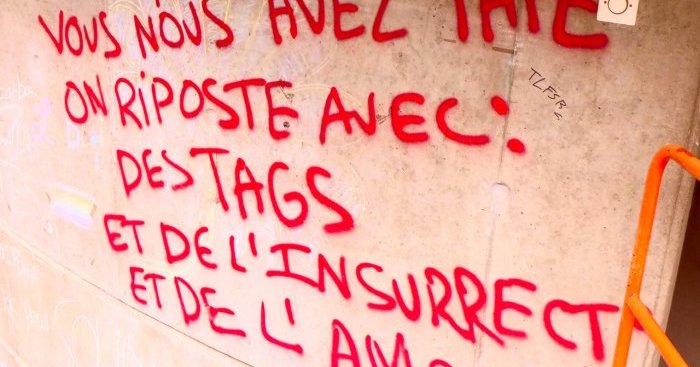 VOUS NOUS AVEZ TAPÉ
ON RIPOSTE AVEC :
DES TAGS
ET DE L'INSURRECT
ET DE L'